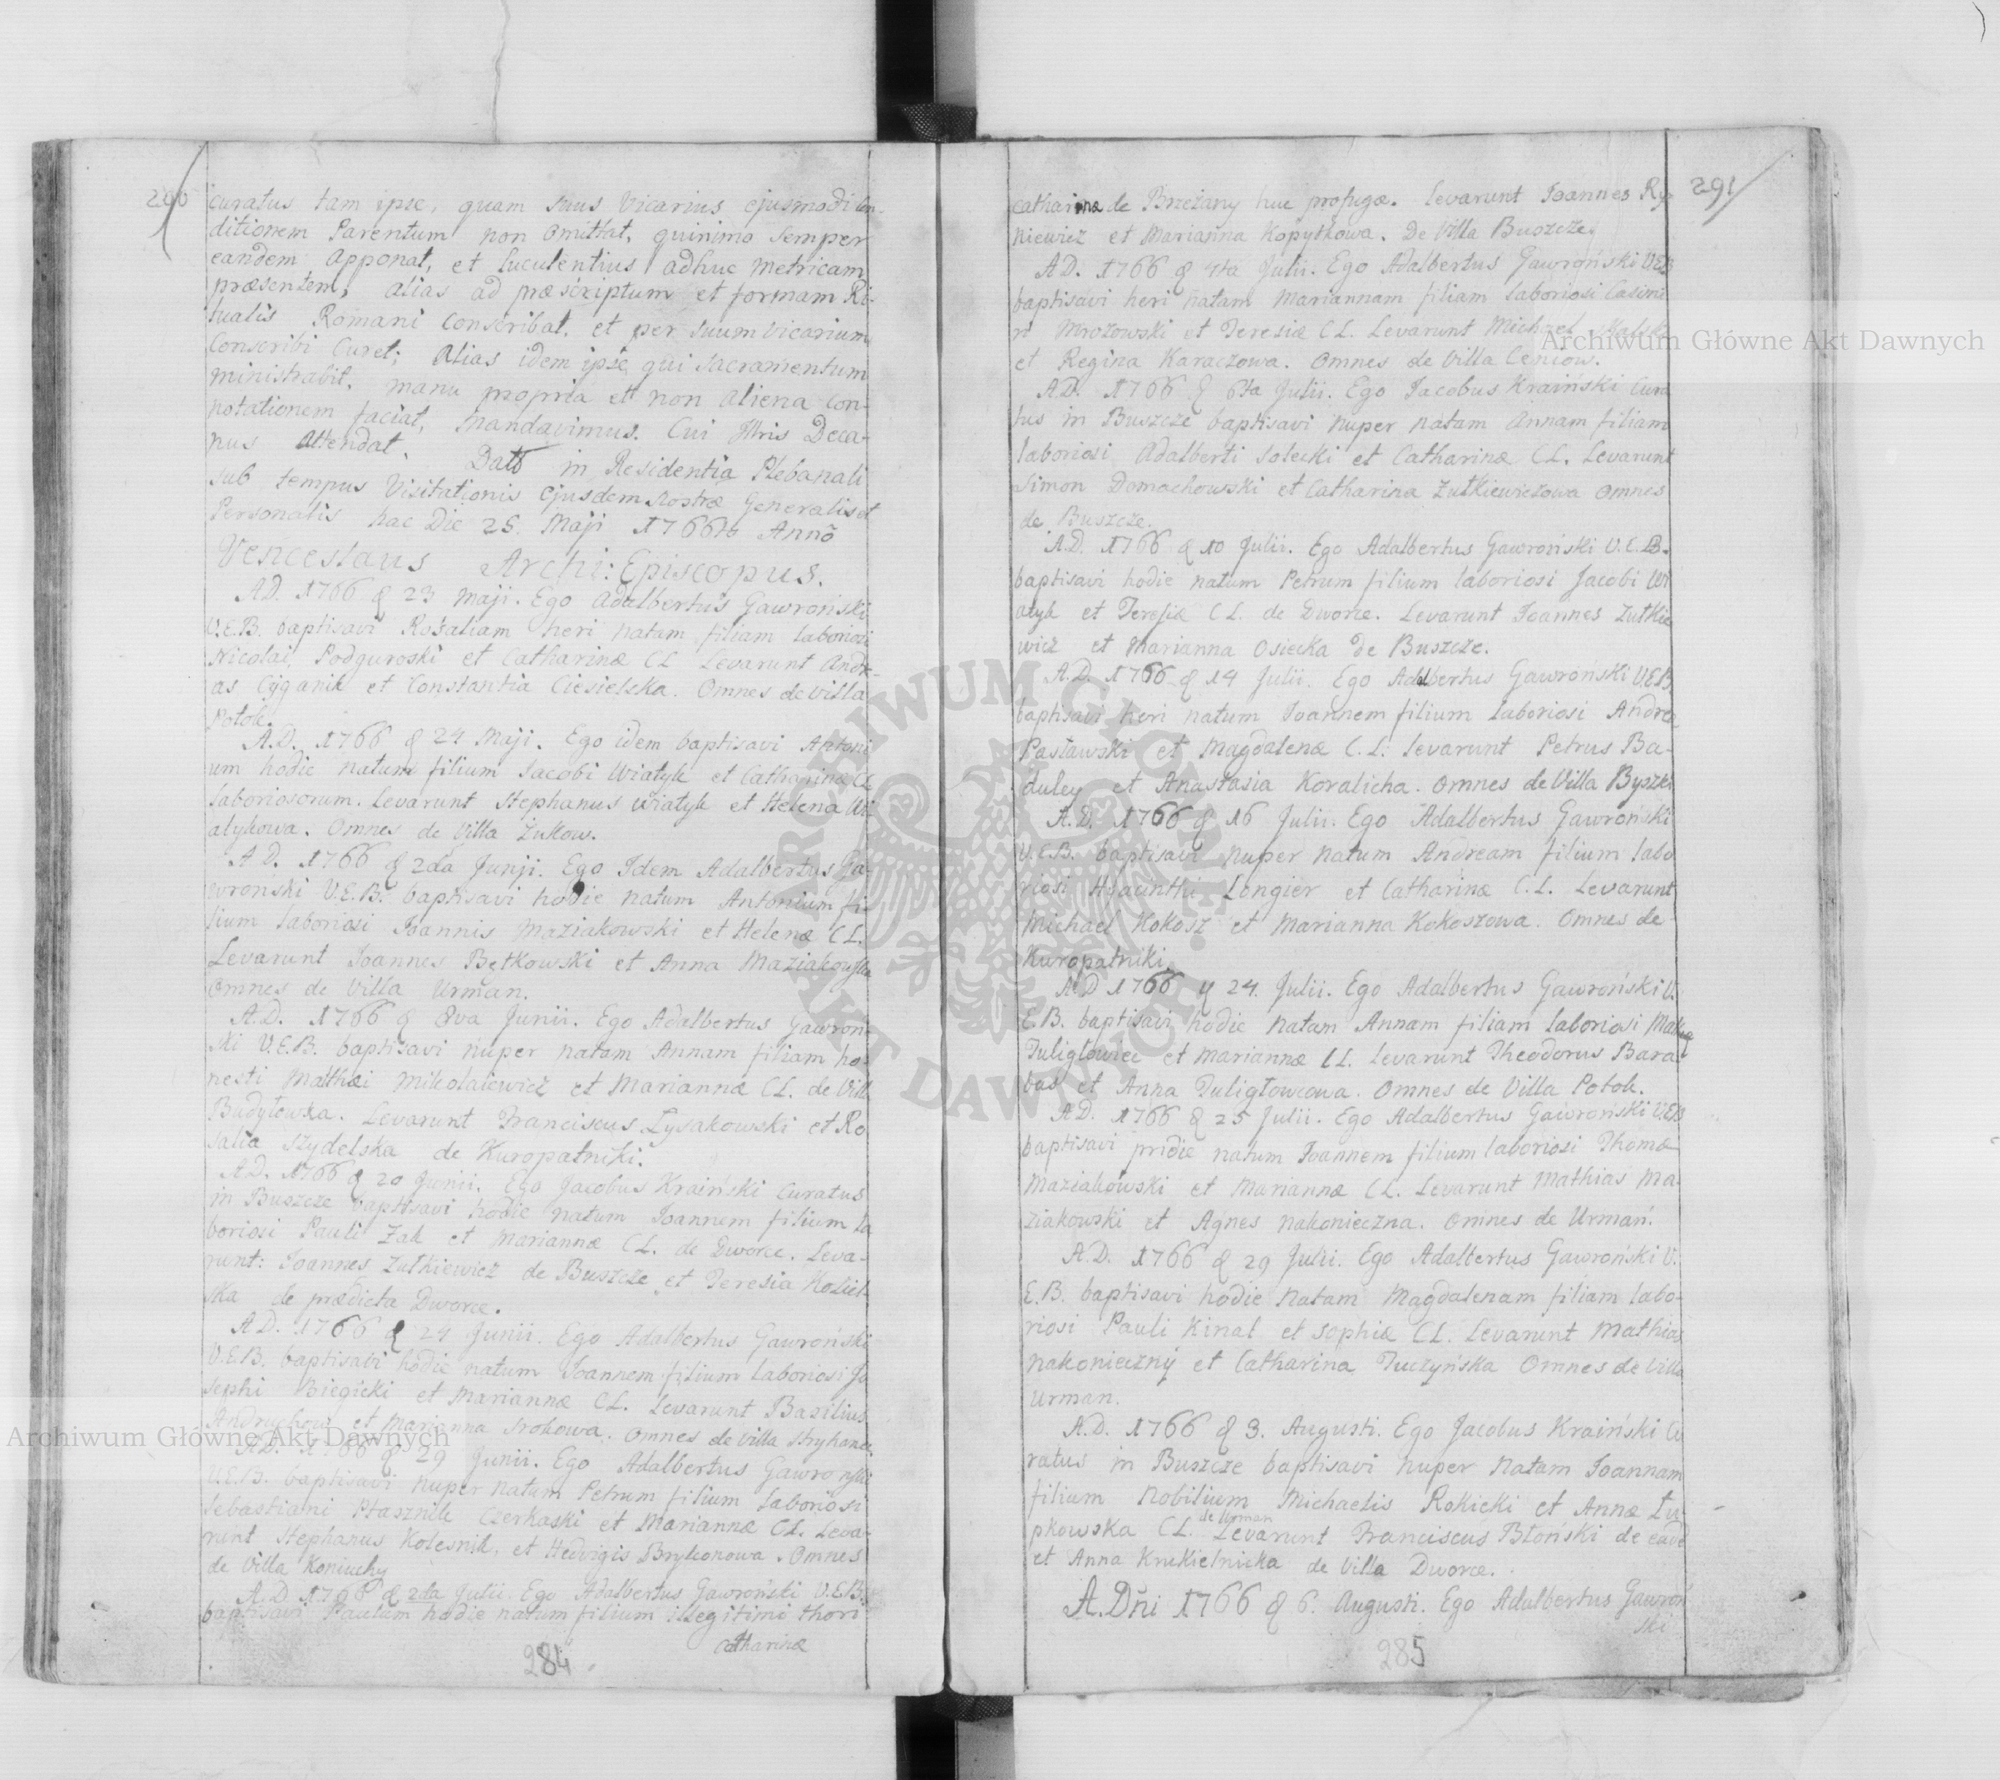 290
curatus tam ipse, quam suus Vicarius ejusmodi Con-
ditionem Parentum non omittat, quinimo semper
eandem apponat, et luculentius adhuc Metricam
præsentem, alias ad præscriptum et formam Ri-
tualis Romani Conscribat, et per suum Vicarium
Conscribi Curet; alias idem ipse qui Sacramentum
ministrabit, manu propria et non aliena Con-
notationem faciat, Mandavimus. Cui Deca-
nus Attendat. in Residentia Plebanali
sub tempus Visitationis ejusdem nostræ Generalis et
Personalis hac Die 25. Maji 1766to Anno
Venceslaus Archi: Episcopus.
AD. 1766 23 Maji. Ego Adalbertus Gawroński
V.E.B. baptisavi Rosaliam heri natam filiam laboriosi
Nicolai Podguroski et Catharinæ CL Levarunt Andr-
as Cyganik et Constantia Ciesielska. Omnes de villa
Potok.
A.D. 1766 24 Maji. Ego idem baptisavi Antoni
um hodie natum filium Jacobi Wiatyk et Catharinæ CL
laboriosorum. Levarunt Stephanus Wiatyk et Helena Wi
atykowa. Omnes de Villa Żukow.
A.D. 1766 2da Junji. Ego Idem Adalbertus Ga-
wroński V.E.B. baptisavi hodie natum Antonium fi-
lium laboriosi Joannis Maziakowski et Helenæ CL.
Levarunt Joannes Bętkowski et Anna Maziakowska
Omnes de Villa Urman.
A.D. 1766 8va Junii. Ego Adalbertus Gawron-
ski V.E.B. baptisavi nuper natam Annam filiam ho-
nesti Matthæi Mikolaiewicz et Mariannæ CL. de Villa
Budyłowka. Levarunt Franciscus Łysakowski et Ro
salia Szydelska de Kuropatniki.
A.D. 1766 20 Junii. Ego Jacobus Kraiński Curatus
in Buszcze baptisavi hodie natum Joannem filium la
boriosi Pauli Żak et Mariannæ CL. de Dworce. Leva-
runt: Joannes Zutkiewicz de Buszcze et Teresia Koziel-
ska de prædicta Dworce.
A.D. 1766 24 Junii. Ego Adalbertus Gawroński
V.E.B. baptisavi hodie natum Joannem filium laboriosi Jo
sephi Biegicki et Mariannæ CL. Levarunt Basilius
Andruchow et Marianna Srokowa. Omnes de villa Stryhance.
A.D. 1766 29 Junii. Ego Adalbertus Gawroński
V.E.B. baptisavi nuper natum Petrum filium laboriosi
Sebastiani Ptasznik Czerkaski et Mariannæ CL. Leva-
runt Stephanus Kolesnik, et Hedvigis Brykonowa. Omnes
de Villa Koniuchy
A.D. 1766 2da Julii Ego Adalbertus Gawroński V.E.B.
baptisavi Paulum hodie natum filium illegitimi thori
Catharinæ
284
291
Catharinæ de Brzeżany huc profugæ. Levarunt Joannes Ry
niewicz et Marianna Kopytkowa. De Villa Buszcze.
AD. 1766 4ta Julii. Ego Adalbertus Gawroński VEB
baptisavi heri natam Mariannam filiam laboriosi Casimi
ri Mrozowski et Teresiæ CL. Levarunt Michael
et Regina Karaczowa. Omnes de Villa Ceniow.
A.D. 1766 6ta Julii. Ego Jacobus Kraiński Cura
tus in Buszcze baptisavi nuper natam Annam filiam
laboriosi Adalberti Solecki et Catharinæ CL. Levarunt
Simon Domachowski et Catharina Zutkiewiczowa Omnes
de Buszcze.
A.D. 1766 10 Julii. Ego Adalbertus Gawroński V.E.B.
baptisavi hodie natum Petrum filium laboriosi Jacobi Wi
atyk et Teresiæ CL. de Dworce. Levarunt Joannes Zutkie
wicz et Marianna Osiecka de Buszcze.
A.D. 1766 14 Julii. Ego Adalbertus Gawroński VEB.
baptisavi heri natum Joannem filium laboriosi Andreæ
Pasławski et Magdalenæ C.L. levarunt Petrus Ba-
duley et Anastasia Koralicha. Omnes de Villa Byszki
A.D. 1766 16 Julii. Ego Adalbertus Gawroński
V.E.B. baptisavi nuper natum Andream filium labo
riosi Hyacinthi Longier et Catharinæ C.L. Levarunt
Michael Kokosz et Marianna Kokoszowa. Omnes de
Kuropatniki.
A.D 1766 24. Julii. Ego Adalbertus Gawroński V.
E.B. baptisavi hodie natam Annam filiam laboriosi
Tuligłowiec et Mariannæ CL. Levarunt Theodorus Bara
bas et Anna Tuligłowcowa. Omnes de Villa Potok.
AD. 1766 25 Julii. Ego Adalbertus Gawroński V.E.B
baptisavi pridie natum Joannem filium laboriosi Thomæ
Maziakowski et Mariannæ CL. Levarunt Mathias Ma-
ziakowski et Agnes nakonieczna. Omnes de Urmań.
A.D. 1766 29 Julii. Ego Adalbertus Gawroński V.
E.B. baptisavi hodie natam Magdalenam filiam labo-
riosi Pauli Kinal et Sophiæ CL. Levarunt Mathias
nakonieczny et Catharina Tuczyńska Omnes de Villa
Urman.
A.D. 1766 3. Augusti. Ego Jacobus Kraiński Cu
ratus in Buszcze baptisavi nuper natam Joannam
filium Nobilium Michaelis Rokicki et Annæ Łu-
pkowska CL. de Urman Levarunt Franciscus Błoński de eade
et Anna Krukielnicka de Villa Dworce.
A.Dni 1766 6. Augusti. Ego Adalbertus Gawroń
ski
285
Archiwum Główne Akt Dawnych
Archiwum Główne Akt Dawnych
ARCHIWUM GŁÓWNE AKT DAWNYCH